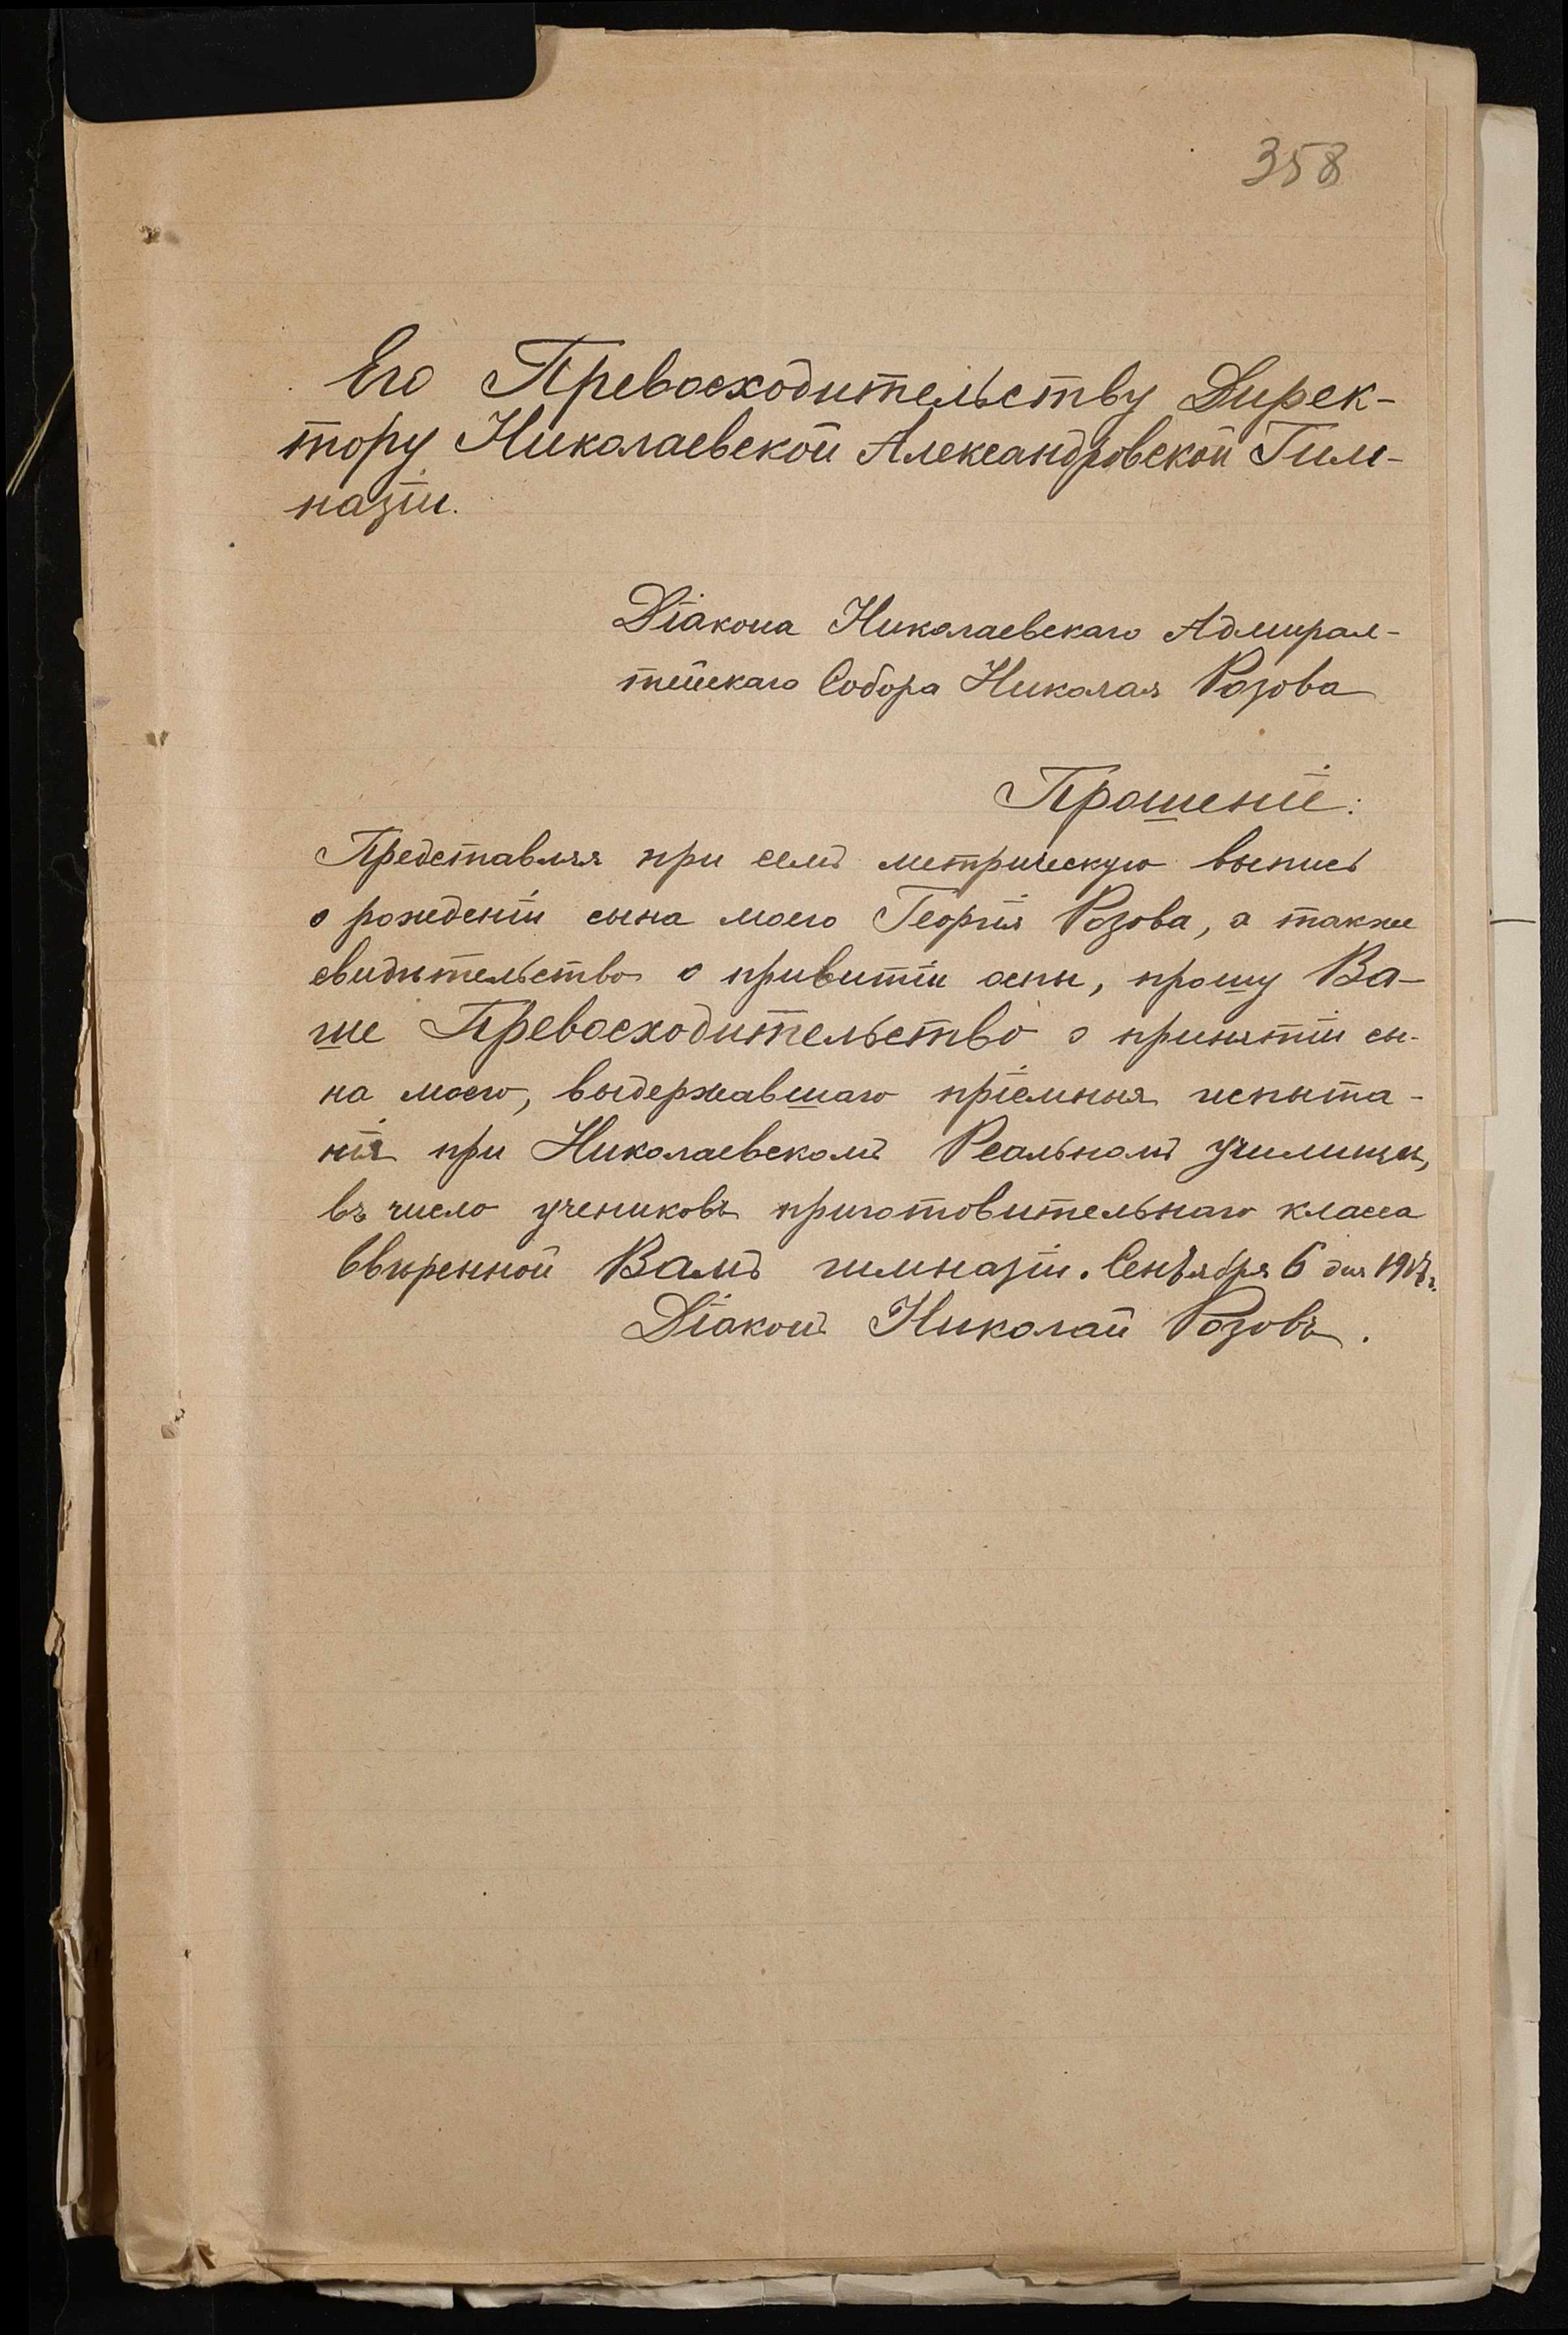 358
Его Превосходительству Дирек-
тору Николаевской Александровской Гим-
назіи.
Діакона Николаевскаго Адмирал-
тейскаго Собора Николая Розова
Прошеніе:
Представляя при семъ метрическую выпись
о рожденіи сына моего Георгія Розова, а также
свидѣтельство о привитіи оспы, прошу Ва-
ше Превосходительство о принятіи сы-
на моего, выдержавшаго пріемныя испыта-
нія при Николаевскомъ Реальномъ училищѣ,
въ число учениковъ приготовительнаго класса
ввѣренной Вамъ гимназіи. Сентября 6 дня
Діаконъ Николай Розовъ.